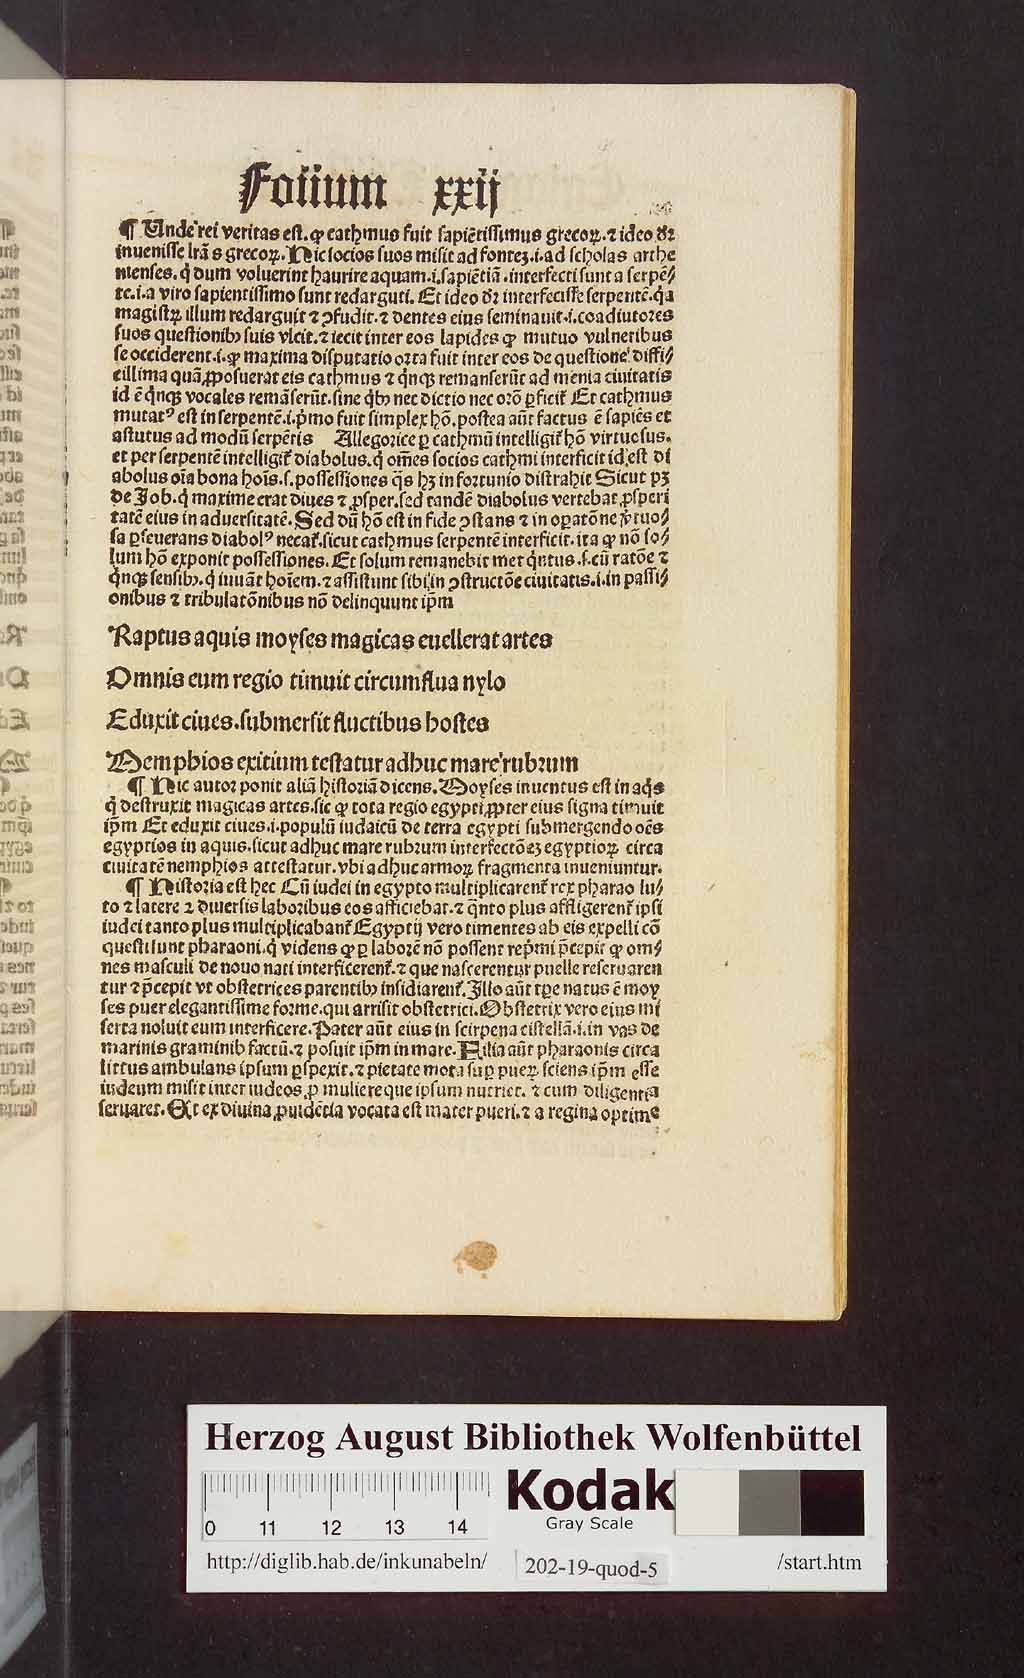 Foliium xxij
¶ Unde rei veritas est. ꝙ cathmus fuit sapiētissimus grecoꝝ. ⁊ ideo dr̄
inuenisse lrās grecoꝝ. Hic socios suos misit ad fontez .i. ad scholas arthe
nienses. q̇ dum voluerint haurire aquam .i. sapiētiā . interfecti sunt a serpē⸗
te .i. a viro sapientissimo sunt redarguti. Et ideo dr̄ interfecisse serpentē. q̇a
magistꝝ illum redarguit ⁊ ꝯfudit. ⁊ dentes eius seminauit .i. coadiutores
suos questionibꝫ suis vicit. ⁊ iecit inter eos lapides ꝙ mutuo vulneribus
se occiderent .i. ꝙ maxima disputatio orta fuit inter eos de questione diffi⸗
cillima quā ꝓposuerat eis cathmus ⁊ q̇nqꝫ remanserūt ad menia ciuitatis
id ē q̇nqꝫ vocales remāserūt. sine q̇bꝫ nec dictio nec orō ꝑficit᷑ Et cathmus
mutatꝰ est in serpentē .i. ṗmo fuit simplex hō. postea aūt factus ē sapiēs et
astutus ad modū serpētis Allegorice ꝑ cathmū intelligit᷑ hō virtuosus.
et per serpentē intelligit᷑ diabolus. q̇ om̄es socios cathmi interficit id est di
abolus oīa bona hoīs .s. possessiones q̄s hꝫ infortunio distrahit Sicut pꝫ
de Job. q̇ maxime erat diues ⁊ ꝓsper. sed tandē diabolus vertebat ꝓsperi
tatē eius in aduersitatē. Sed dū hō est in fide ꝯstans ⁊ in oꝑatōne v̇tuo⸗
sa ꝑseuerans diabolꝰ necat᷑. sicut cathmus serpentē interficit. ita ꝙ nō so⸗
lum hō exponit possessiones. Et solum remanebit met q̇ntus .s. cū ratōe ⁊
q̇nqꝫ sensibꝫ. q̇ iuuāt hoīem. ⁊ assistunt sibi in ꝯstructōe ciuitatis .i. in passi⸗
onibus ⁊ tribulatōnibus nō delinquunt ip̄m
Raptus aquis moyses magicas euellerat artes
Omnis eum regio timuit circumflua nylo
Eduxit ciues. submersit fluctibus hostes
Nemphios exitium testatur adhuc mare rubrum
¶ Hic autor ponit aliā historiā dicens. Moyses inuentus est in aq̇s
q̇ destruxit magicas artes. sic ꝙ tota regio egypti ꝓpter eius signa timuit
ip̄m Et eduxit ciues .i. populū iudaicū de terra egypti submergendo oēs
egyptios in aquis. sicut adhuc mare rubrum interfectōeꝫ egyptioꝝ circa
ciuitatē nemphios attestatur. vbi adhuc armoꝝ fragmenta inueniuntur.
¶ Historia est hec Cū iudei in egypto multiplicarent᷑ rex pharao lu⸗
to ⁊ latere ⁊ diuersis laboribus eos afficiebat. ⁊ q̄nto plus affligerent᷑ ipsi
iudei tanto plus multiplicabant᷑ Egyptij vero timentes ab eis expelli cō
questi sunt pharaoni. q̇ videns ꝙ ꝑ laborē nō possent reṗmi p̄cepit ꝙ om⸗
nes masculi de nouo nati interficerent᷑. ⁊ que nascerentur puelle reseruaren
tur ⁊ p̄cepit vt obstetrices parentibꝫ insidiarent᷑. Illo aūt tꝑe natus ē moy
ses puer elegantissime forme. qui arrisit obstetrici. Obstetrix vero eius mi
serta noluit eum interficere. Pater aūt eius in scirpena cistellā .i. in vas de
marinis graminibꝫ factū. ⁊ posuit ip̄m in mare. Filia aūt pharaonis circa
littus ambulans ipsum ꝑspexit. ⁊ pietate mota suꝑ pueꝝ sciens ip̄m esse
iudeum misit inter iudeos ꝓ muliere que ipsum nutriet. ⁊ cum diligentia
seruaret. Et ex diuina ꝓuidētia vocata est mater pueri. ⁊ a regina optime
Herzog August Bibliothek Wolfenbüttel
0 11 12 13 14
Kodak
Gray Scale
http://diglib.hab.de/inkunabeln/ 202-19-quod-5 /start.htm